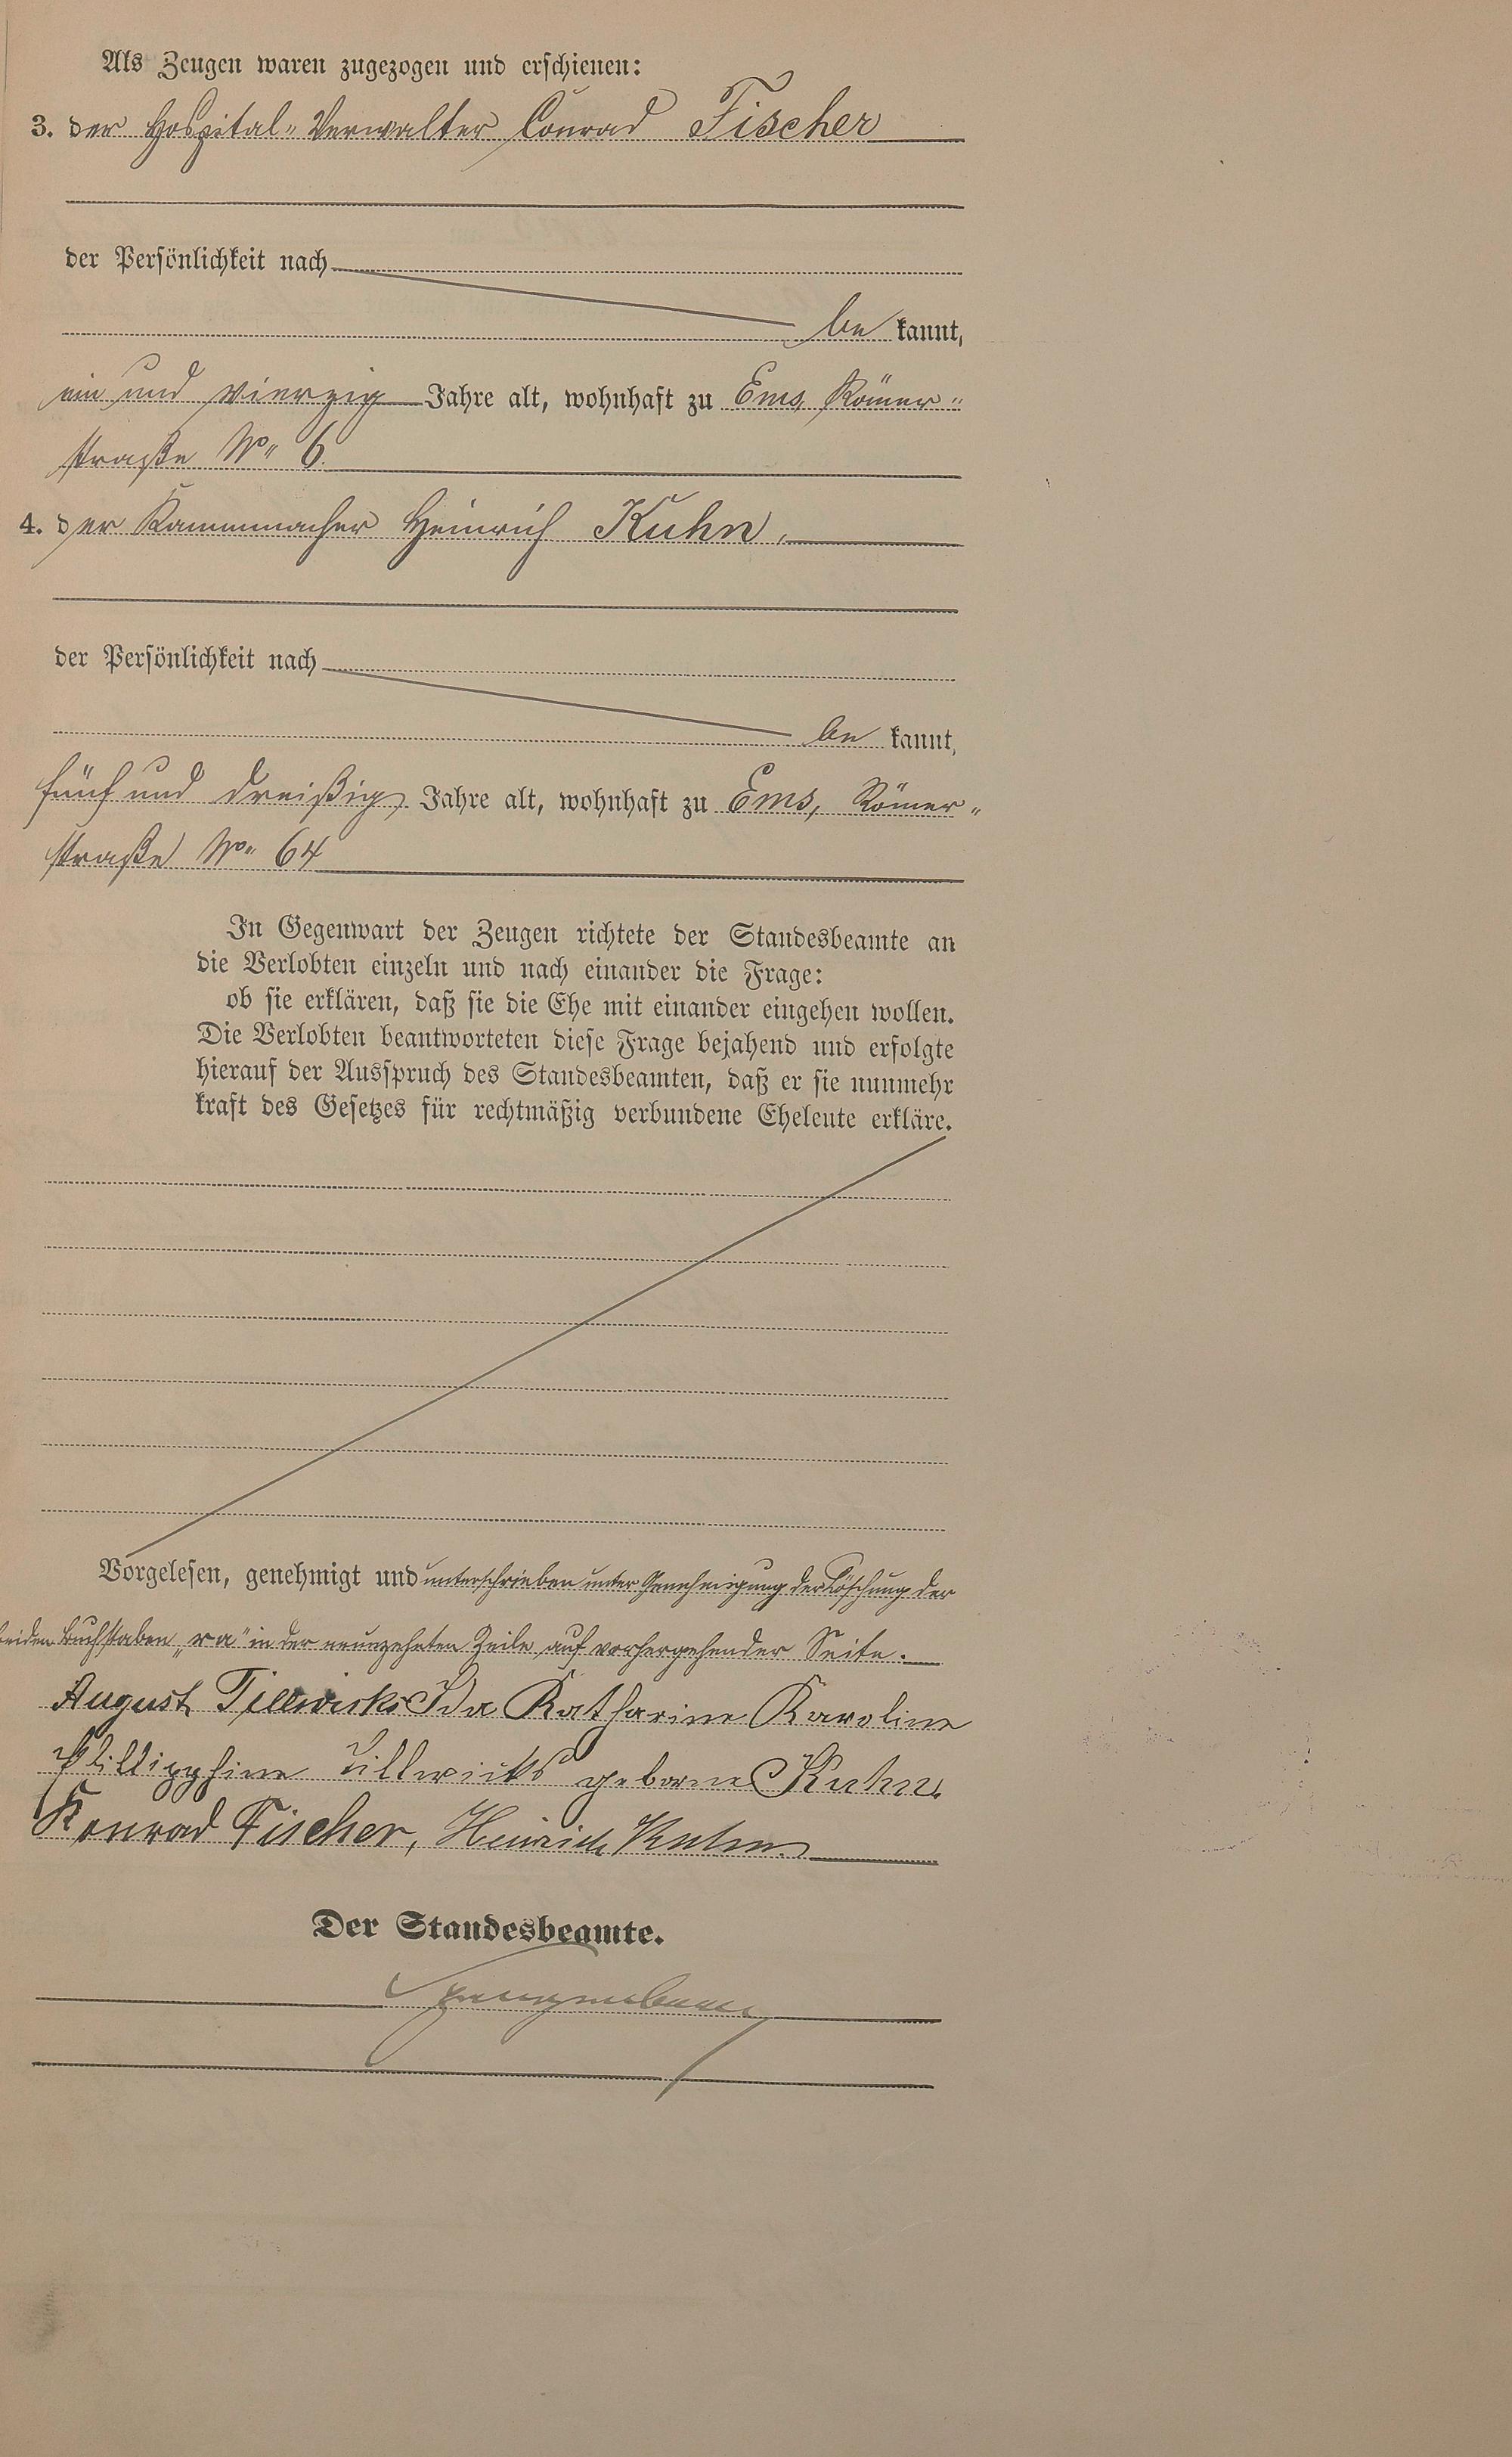 Als Zeugen waren zugezogen und erschienen:
3. der Hospital-Verwalter Conrad Fischer
der Persönlichkeit nach
be kannt,
ein und vierzig Jahre alt, wohnhaft zu Ems, Römer-
straße No 6.
4. der Kammmacher Heinrich Kuhn,
der Persönlichkeit nach
be kannt,
fünf und dreißig Jahre alt, wohnhaft zu Ems, Römer-
straße No 64
In Gegenwart der Zeugen richtete der Standesbeamte an
die Verlobten einzeln und nach einander die Frage:
ob sie erklären, daß sie die Ehe mit einander eingehen wollen.
Die Verlobten beantworteten diese Frage bejahend und erfolgte
hierauf der Ausspruch des Standesbeamten, daß er sie nunmehr
kraft des Gesetzes für rechtmäßig verbundene Eheleute erkläre.
Vorgelesen, genehmigt und unterschrieben unter Genehmigung der Löschung der
beiden Buchstaben „ra" in der neunzehnten Zeile auf vorhergehender Seite.
August Tillwicks Ida Katharine Karoline
Phillippine Tillwicks geborne Kuhn.
Konrad Fischer, Heinrich Kuhn
Der Standesbeamte.